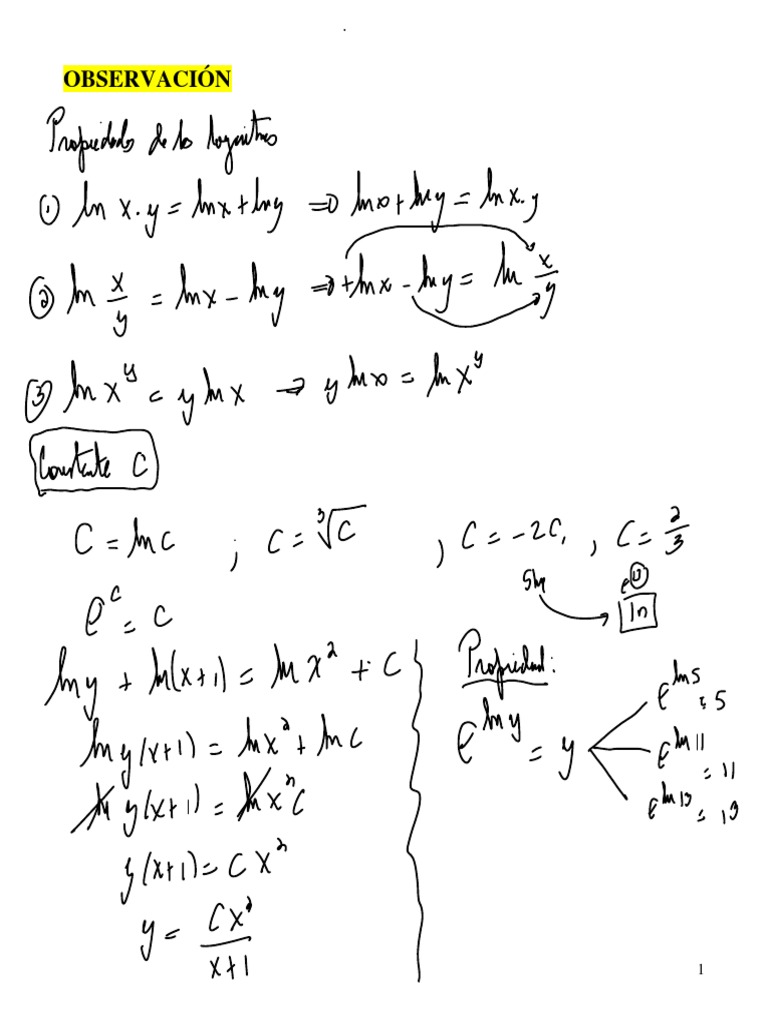 OBSERVACIÓN
Propiedades de los logaritmos
① ln x·y = lnx + lny ⇒ lnx + lny = ln x·y
② ln x/y = lnx - lny ⇒ +lnx - lny = ln x/y
③ ln x^y = y lnx → y lnx = ln x^y
Constante C
C = lnC ; C = ∛C , C = -2C₁ , C = 2/3
e^c = C
ln
ln y + ln(x+1) = ln x² + C
ln y(x+1) = ln x² + ln C
ln y(x+1) = ln x² C
y(x+1) = C x²
y = Cx²/x+1
Propiedad:
e^ln y = y
e^ln5 = 5
e^ln11 = 11
e^ln13 = 13
1